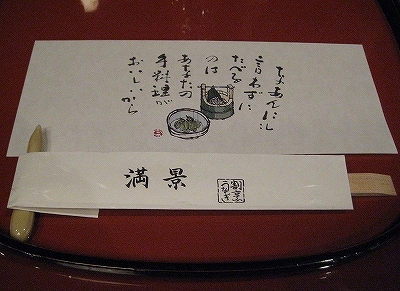 なあんにも
言わずに
たべる
のは
あなたの
手料理が
おいしいから
満景
割烹
うなぎ